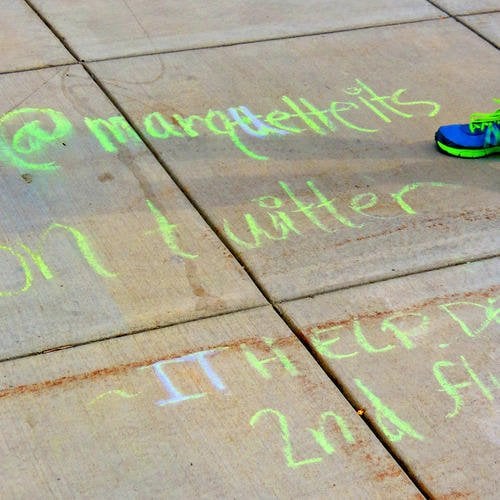 @marquetteits
on twitter
~IT HELP DE
2nd fl